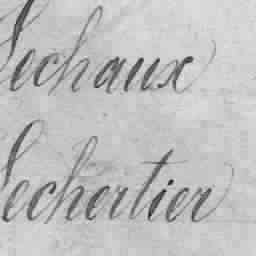 Lechaux
Lechertier